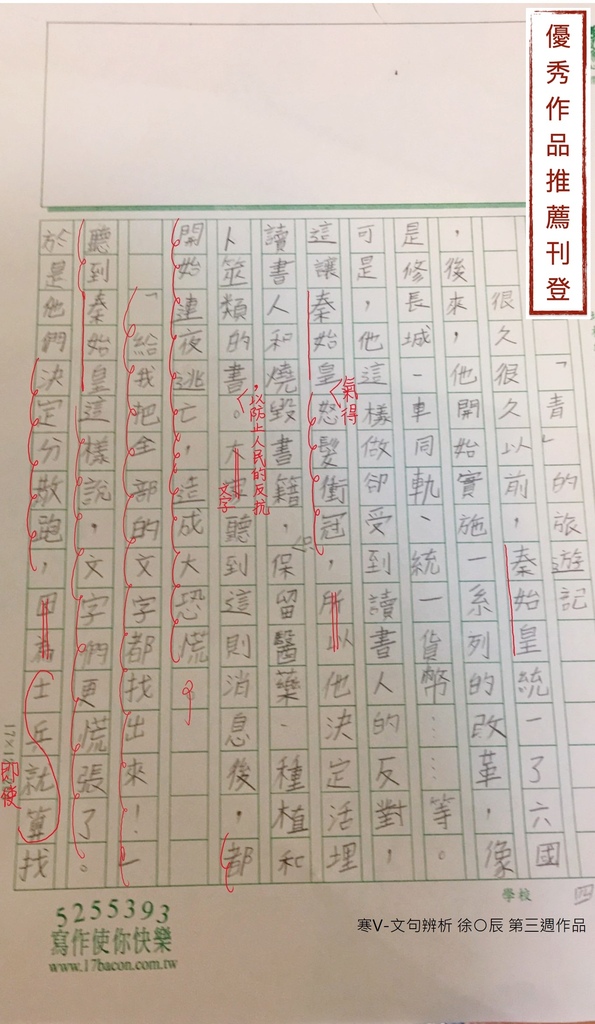 優秀作品推薦刊登
「青」的旅遊記
很久很久以前，秦始皇統一了六國
，後來，他開始實施一系列的改革，像
是修長城、車同軌、統一貨幣……等。
可是，他這樣做卻受到讀書人的反對，
這讓秦始皇怒髮衝冠，所以他決定活埋
氣得
讀書人和燒毀書籍，保留醫藥、種植和
卜筮類的書。大家聽到這則消息後，都
，以防止人民的反抗
文字
開始連夜逃亡，造成大恐慌。
「給我把全部的文字都找出來！」
聽到秦始皇這樣說，文字們更慌張了。
於是他們決定分散跑，因為士兵就算找
即使
17×1
學校
四
5255393
寫作使你快樂
www.17bacon.com.tw
寒V-文句辨析 徐〇辰 第三週作品